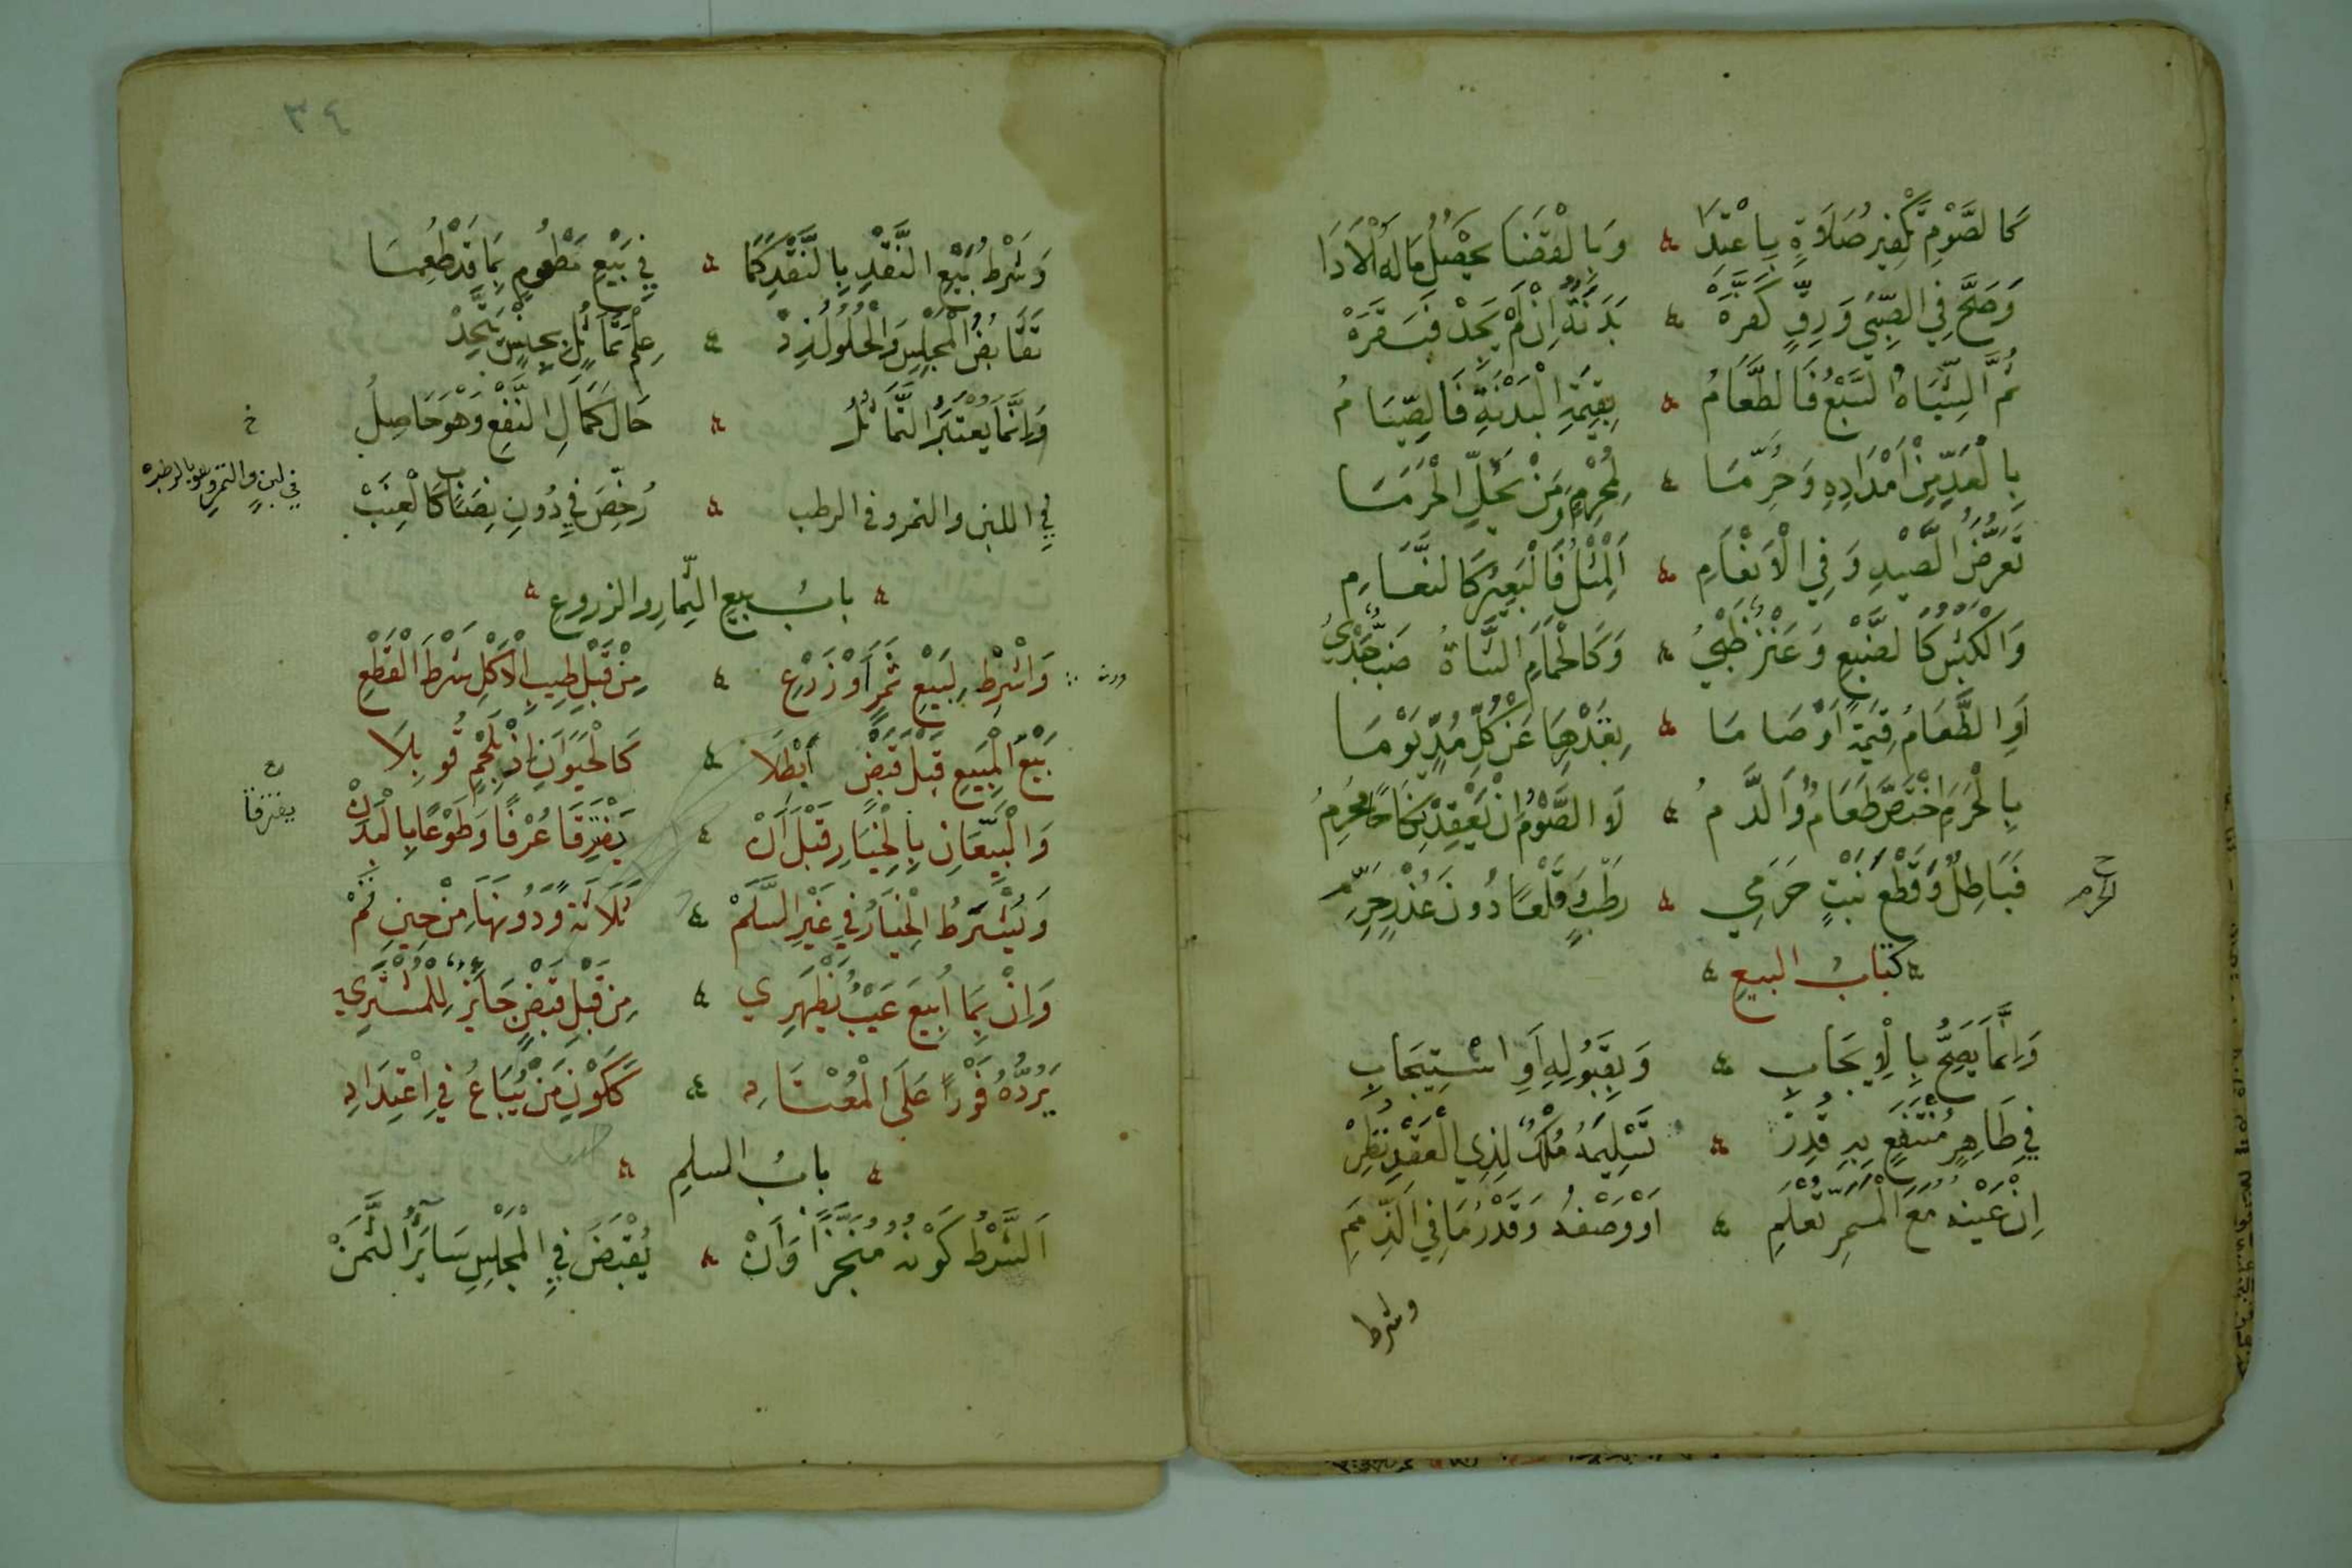 كَالصَّوْمِ تَكْفِيرُ صَلَاةٍ بِاعْتِدَا وَبِالْقَضَا يَحْصُلُ مَا لَهُ الْأَدَا
وَصَحَّ فِي الصَّبِيِّ وَرِقٍّ كَفَّرَهْ بَدَنَةٌ إِنْ لَمْ يَجِدْ فَبَقَرَهْ
ثُمَّ الشِّيَاهُ السَّبْعُ فَالطَّعَامُ بِقِيمَةِ الْبَدَنَةِ فَالصِّيَامُ
بِالْعَدِّ مِنْ أَمْدَادِهِ وَحُرِّمَا لِمُحْرِمٍ وَمَنْ يَحُلُّ الْحَرَمَا
تَعَرُّضُ الصَّيْدِ وَفِي الْأَنْعَامِ اَلْمِثْلُ فَالْبَعِيرُ كَالنَّعَامِ
وَالْكَبْشُ كَالضَّبْعِ وَعَنْزٌ ظَبْيُ وَكَالْحَمَامِ الشَّاةُ ضَبٌّ جَدْيُ
أَوِ الطَّعَامُ قِيمَةً أَوْ صَامَا بِعَدِّهَا عَنْ كُلِّ مُدٍّ يَوْمَا
بِالْحَرَمِ اخْتَصَّ طَعَامٌ وَالدَّمُ لَا الصَّوْمُ إِنْ يَعْقِدْ نِكَاحًا مُحْرِمُ
فَبَاطِلٌ وَقَطْعُ نَبْتٍ حَرَمِي رَطْبٍ وَقَلْعًا دُونَ عُذْرٍ حَرِّمِ
كتابُ البيعِ
وَإِنَّمَا يَصِحُّ بِالْإِيجَابِ وَبِقَبُولِهِ أَوِ اسْتِيجَابِ
فِي طَاهِرٍ مُنْتَفَعٍ بِهِ قُدِرْ تَسْلِيمُهُ مُلْكٌ لِذِي الْعَقْدِ نُظِرْ
إِنْ عَيْنُهُ مَعَ الْمَمَرِّ تُعْلَمِ أَوْ وَصْفُهُ وَقَدْرُ مَا فِي الذِّمَمِ
وشرط
٣٤
وَشَرْطُ بَيْعِ النَّقْدِ بِالنَّقْدِ كَمَا فِي بَيْعِ مَطْعُومٍ بِمَا قَدْ طُعِمَا
تَقَابُضُ الْمَجْلِسِ وَالْحُلُولُ زِدْ عِلْمَ تَمَاثُلٍ بِجِنْسٍ يَتَّحِدْ
وَإِنَّمَا يُعْتَبَرُ التَّمَاثُلُ حَالَ كَمَالِ النَّفْعِ وَهْوَ حَاصِلُ
فِي اللبن والتمر وفي الرطب رُخِّصَ فِي دُونِ نِصَابٍ كَالْعِنَبْ
خ
بابُ بيعِ الثِّمارِ والزروعِ
وَاشْرِطْ لِبَيْعِ ثَمَرٍ أَوْ زَرْعِ مِنْ قَبْلِ طِيبِ الْأَكْلِ شَرْطَ الْقَطْعِ
بَيْعُ الْمَبِيعِ قَبْلَ قَبْضٍ أُبْطِلَا كَالْحَيَوَانِ إِذْ بِلَحْمٍ قُوبِلَا
وَالْبَيِّعَانِ بِالْخِيَارِ قَبْلَ أَنْ يَفْتَرِقَا عُرْفًا وَطَوْعًا بِالْبَدَنْ
يفترقا
وَيُشْتَرَطُ الْخِيَارُ فِي غَيْرِ السَّلَمْ ثَلَاثَةٌ وَدُونَهَا مِنْ حِينِ تَمْ
وَإِنْ بِمَا أُبِيعَ عَيْبٌ يَظْهَرِي مِنْ قَبْلِ قَبْضٍ جَائِزٌ لِلْمُشْتَرِي
يَرُدُّهُ فَوْرًا عَلَى الْمُعْتَادِ كَكَوْنِ مَنْ يُبَاعُ فِي اعْتِدَادِ
بابُ السلمِ
اَلشَّرْطُ كَوْنُهُ مُنَجَّزًا وَأَنْ يُقْبَضَ فِي الْمَجْلِسِ سَائِرُ الثَّمَنْ